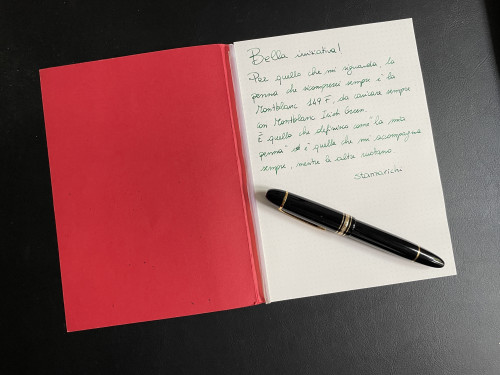 Bella iniziativa!
Per quello che mi riguarda, la
penna che sceglierei sempre è la
Montblanc 149 F, da caricare sempre
con Montblanc Irish Green.
È quella che definisco come "la mia
penna" è quella che mi accompagna
sempre, mentre le altre ruotano
stamarichi